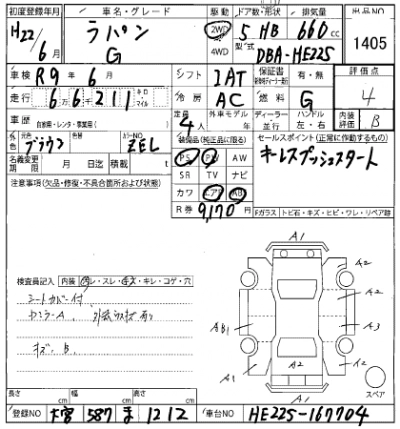 初度登録年月 車名・グレード 駆動 ドア数・形状 排気量 出品NO
H22/6月 ラパン G 2WD 4WD 5 HB 660cc 1405
型式 DBA-HE22S
車検 R9年6月 シフト IAT 保証書 有・無 評価点
走行 66211 キロ・マイル 冷房 AC 燃料 G 4
車歴 自家用・レンタ・事業用 定員 4人 外車モデル 年 ディーラー 並行 ハンドル 左・右 内装評価 B
外色 ブラウン 色替 カラーNO ZEL 装備品(純正品に限る) セールスポイント(正常に作動するもの)
名義変更期限 月 日迄 積載 t PS PW AW キーレスプッシュスタート
注意事項(欠品・修復・不具合箇所および状態) SR TV ナビ
カワ エアB AB
R券 9,170円
Fガラス トビ石・キズ・ヒビ・ワレ・リペア跡
A1
検査員記入 内装 スレ・キレ・コゲ・穴 A2
シートカバー付 A2
AB1 A3
キズ、B
A1 A2 A1
スペア
長さ cm 幅 cm 高さ cm
登録NO 大宮 587 ま 1212 車台NO HE22S-167704